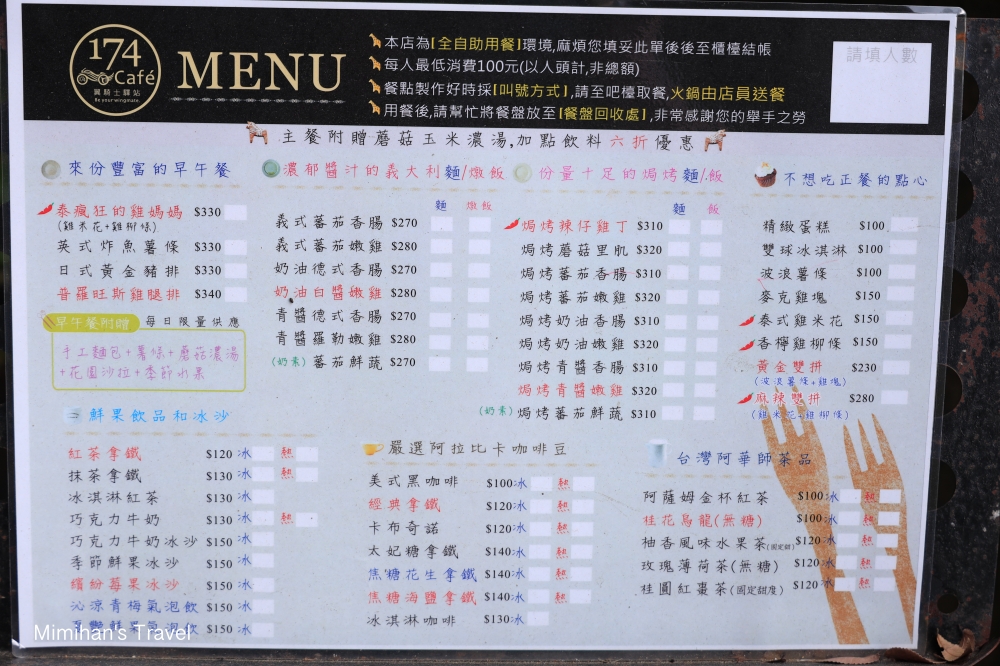 174
Café
翼騎士驛站
Be your wingmate.
MENU
本店為【全自助用餐】環境,麻煩您填妥此單後後至櫃檯結帳
每人最低消費100元(以人頭計,非總額)
餐點製作好時採【叫號方式】,請至吧檯取餐,火鍋由店員送餐
用餐後,請幫忙將餐盤放至【餐盤回收處】,非常感謝您的舉手之勞
請填人數
主餐附贈蘑菇玉米濃湯,加點飲料六折優惠
來份豐富的早午餐
泰瘋狂的雞媽媽 $330
(雞米花+雞柳條)
英式炸魚薯條 $330
日式黃金豬排 $330
普羅旺斯雞腿排 $340
早午餐附贈 每日限量供應
手工麵包+薯條+蘑菇濃湯
+花園沙拉+季節水果
濃郁醬汁的義大利麵/燉飯
麵 燉飯
義式蕃茄香腸 $270
義式蕃茄嫩雞 $280
奶油德式香腸 $270
奶油白醬嫩雞 $280
青醬德式香腸 $270
青醬羅勒嫩雞 $280
(奶素) 蕃茄鮮蔬 $270
份量十足的焗烤麵/飯
麵 飯
焗烤辣仔雞丁 $310
焗烤蘑菇里肌 $320
焗烤蕃茄香腸 $310
焗烤蕃茄嫩雞 $320
焗烤奶油香腸 $310
焗烤奶油嫩雞 $320
焗烤青醬香腸 $310
焗烤青醬嫩雞 $320
(奶素) 焗烤蕃茄鮮蔬 $310
不想吃正餐的點心
精緻蛋糕 $100
雙球冰淇淋 $100
波浪薯條 $100
麥克雞塊 $150
泰式雞米花 $150
香檸雞柳條 $150
黃金雙拼 $230
(波浪薯條+雞塊)
麻辣雙拼 $280
(雞米花+雞柳條)
鮮果飲品和冰沙
紅茶拿鐵 $120 冰 熱
抹茶拿鐵 $130 冰 熱
冰淇淋紅茶 $130 冰
巧克力牛奶 $130 冰 熱
巧克力牛奶冰沙 $150 冰
季節鮮果冰沙 $150 冰
繽紛莓果冰沙 $150 冰
沁涼青梅氣泡飲 $150 冰
鮮果氣泡飲 $150 冰
嚴選阿拉比卡咖啡豆
美式黑咖啡 $100 冰 熱
經典拿鐵 $120 冰 熱
卡布奇諾 $120 冰 熱
太妃糖拿鐵 $140 冰 熱
焦糖花生拿鐵 $140 冰 熱
焦糖海鹽拿鐵 $140 冰 熱
冰淇淋咖啡 $130 冰
台灣阿華師茶品
阿薩姆金杯紅茶 $100 冰 熱
桂花烏龍(無糖) $100 冰 熱
柚香風味水果茶(固定甜) $120 冰 熱
玫瑰薄荷茶(無糖) $120 冰 熱
桂圓紅棗茶(固定甜度) $120 冰 熱
Mimihan's Travel